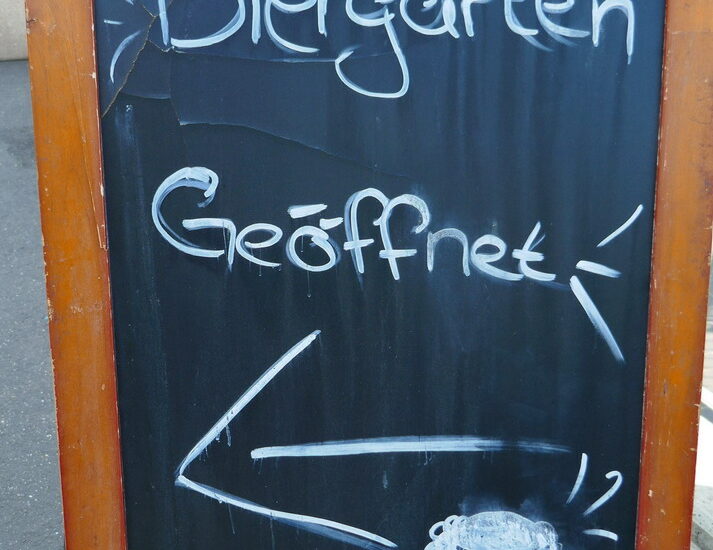 Biergarten
Geöffnet